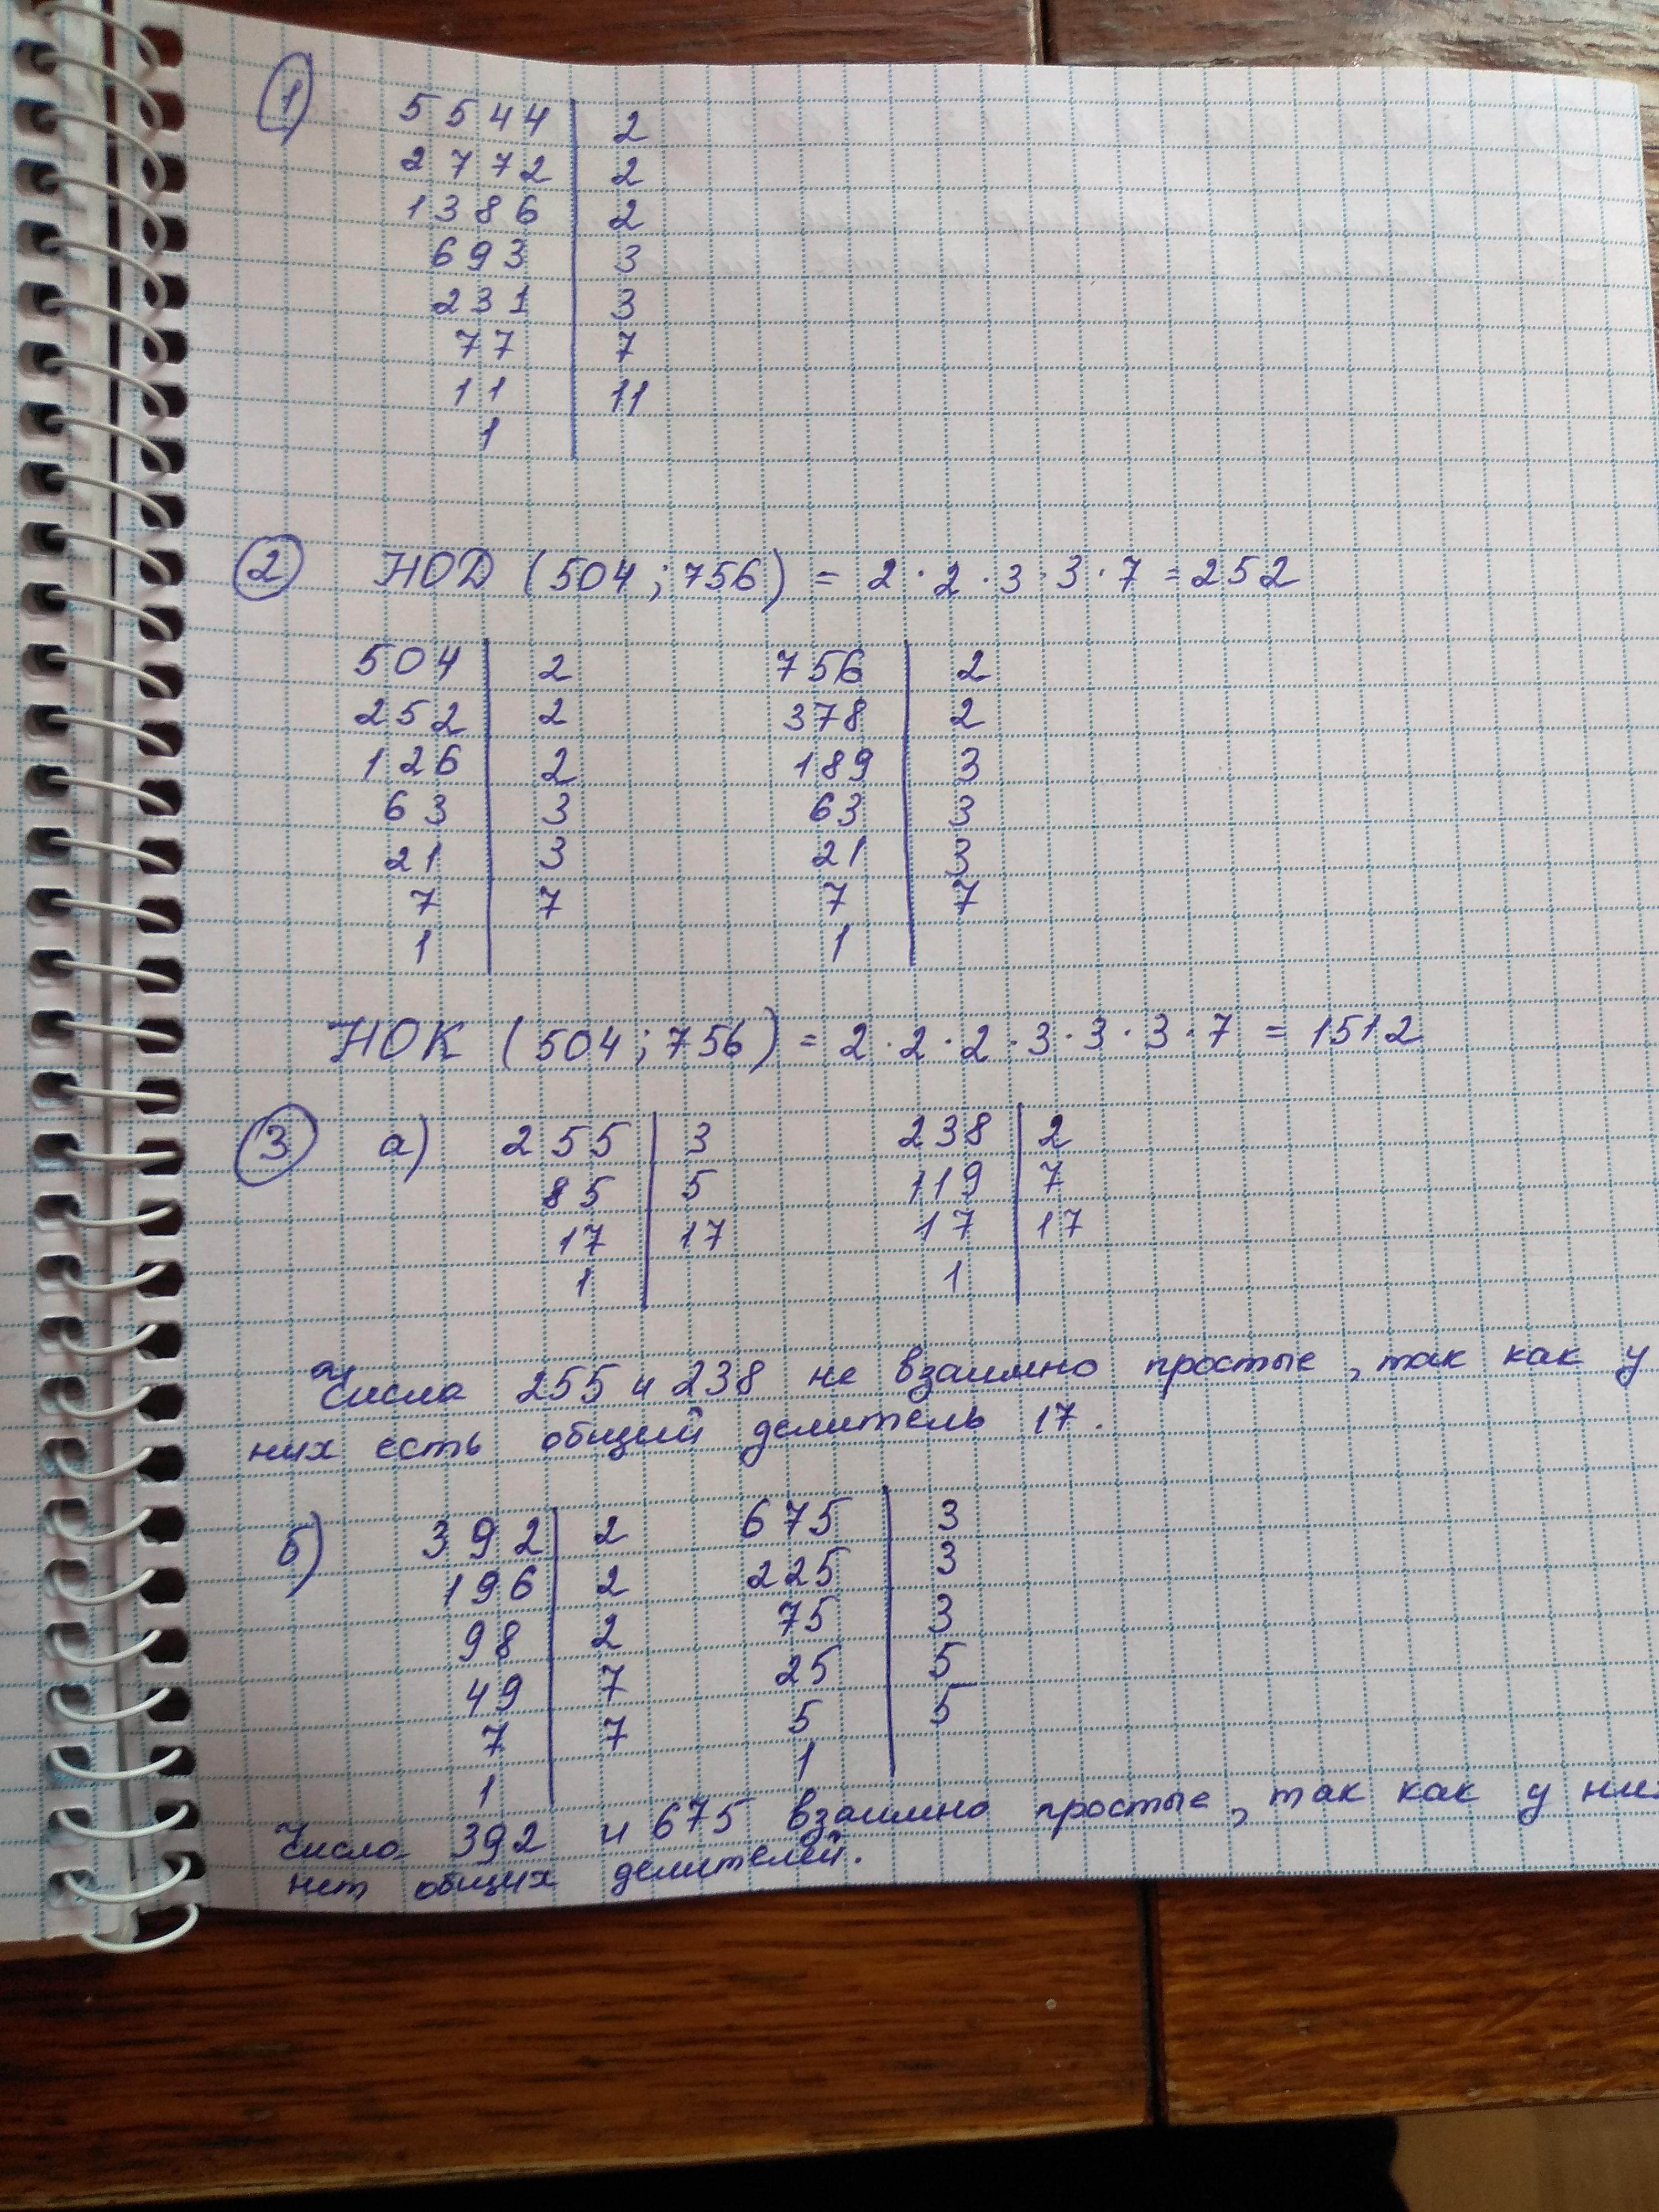 1
5544 | 2
2772 | 2
1386 | 2
693 | 3
231 | 3
77 | 7
11 | 11
1
2 НОД (504; 756) = 2 · 2 · 3 · 3 · 7 = 252
504 | 2 756 | 2
252 | 2 378 | 2
126 | 2 189 | 3
63 | 3 63 | 3
21 | 3 21 | 3
7 | 7 7 | 7
1 1
НОК (504; 756) = 2 · 2 · 2 · 3 · 3 · 3 · 7 = 1512
3 а) 255 | 3 238 | 2
85 | 5 119 | 7
17 | 17 17 | 17
1 1
Числа 255 и 238 не взаимно простые, так как у
них есть общий делитель 17.
б) 392 | 2 675 | 3
196 | 2 225 | 3
98 | 2 75 | 3
49 | 7 25 | 5
7 | 7 5 | 5
1 1
Числа 392 и 675 взаимно простые, так как у них
нет общих делителей.